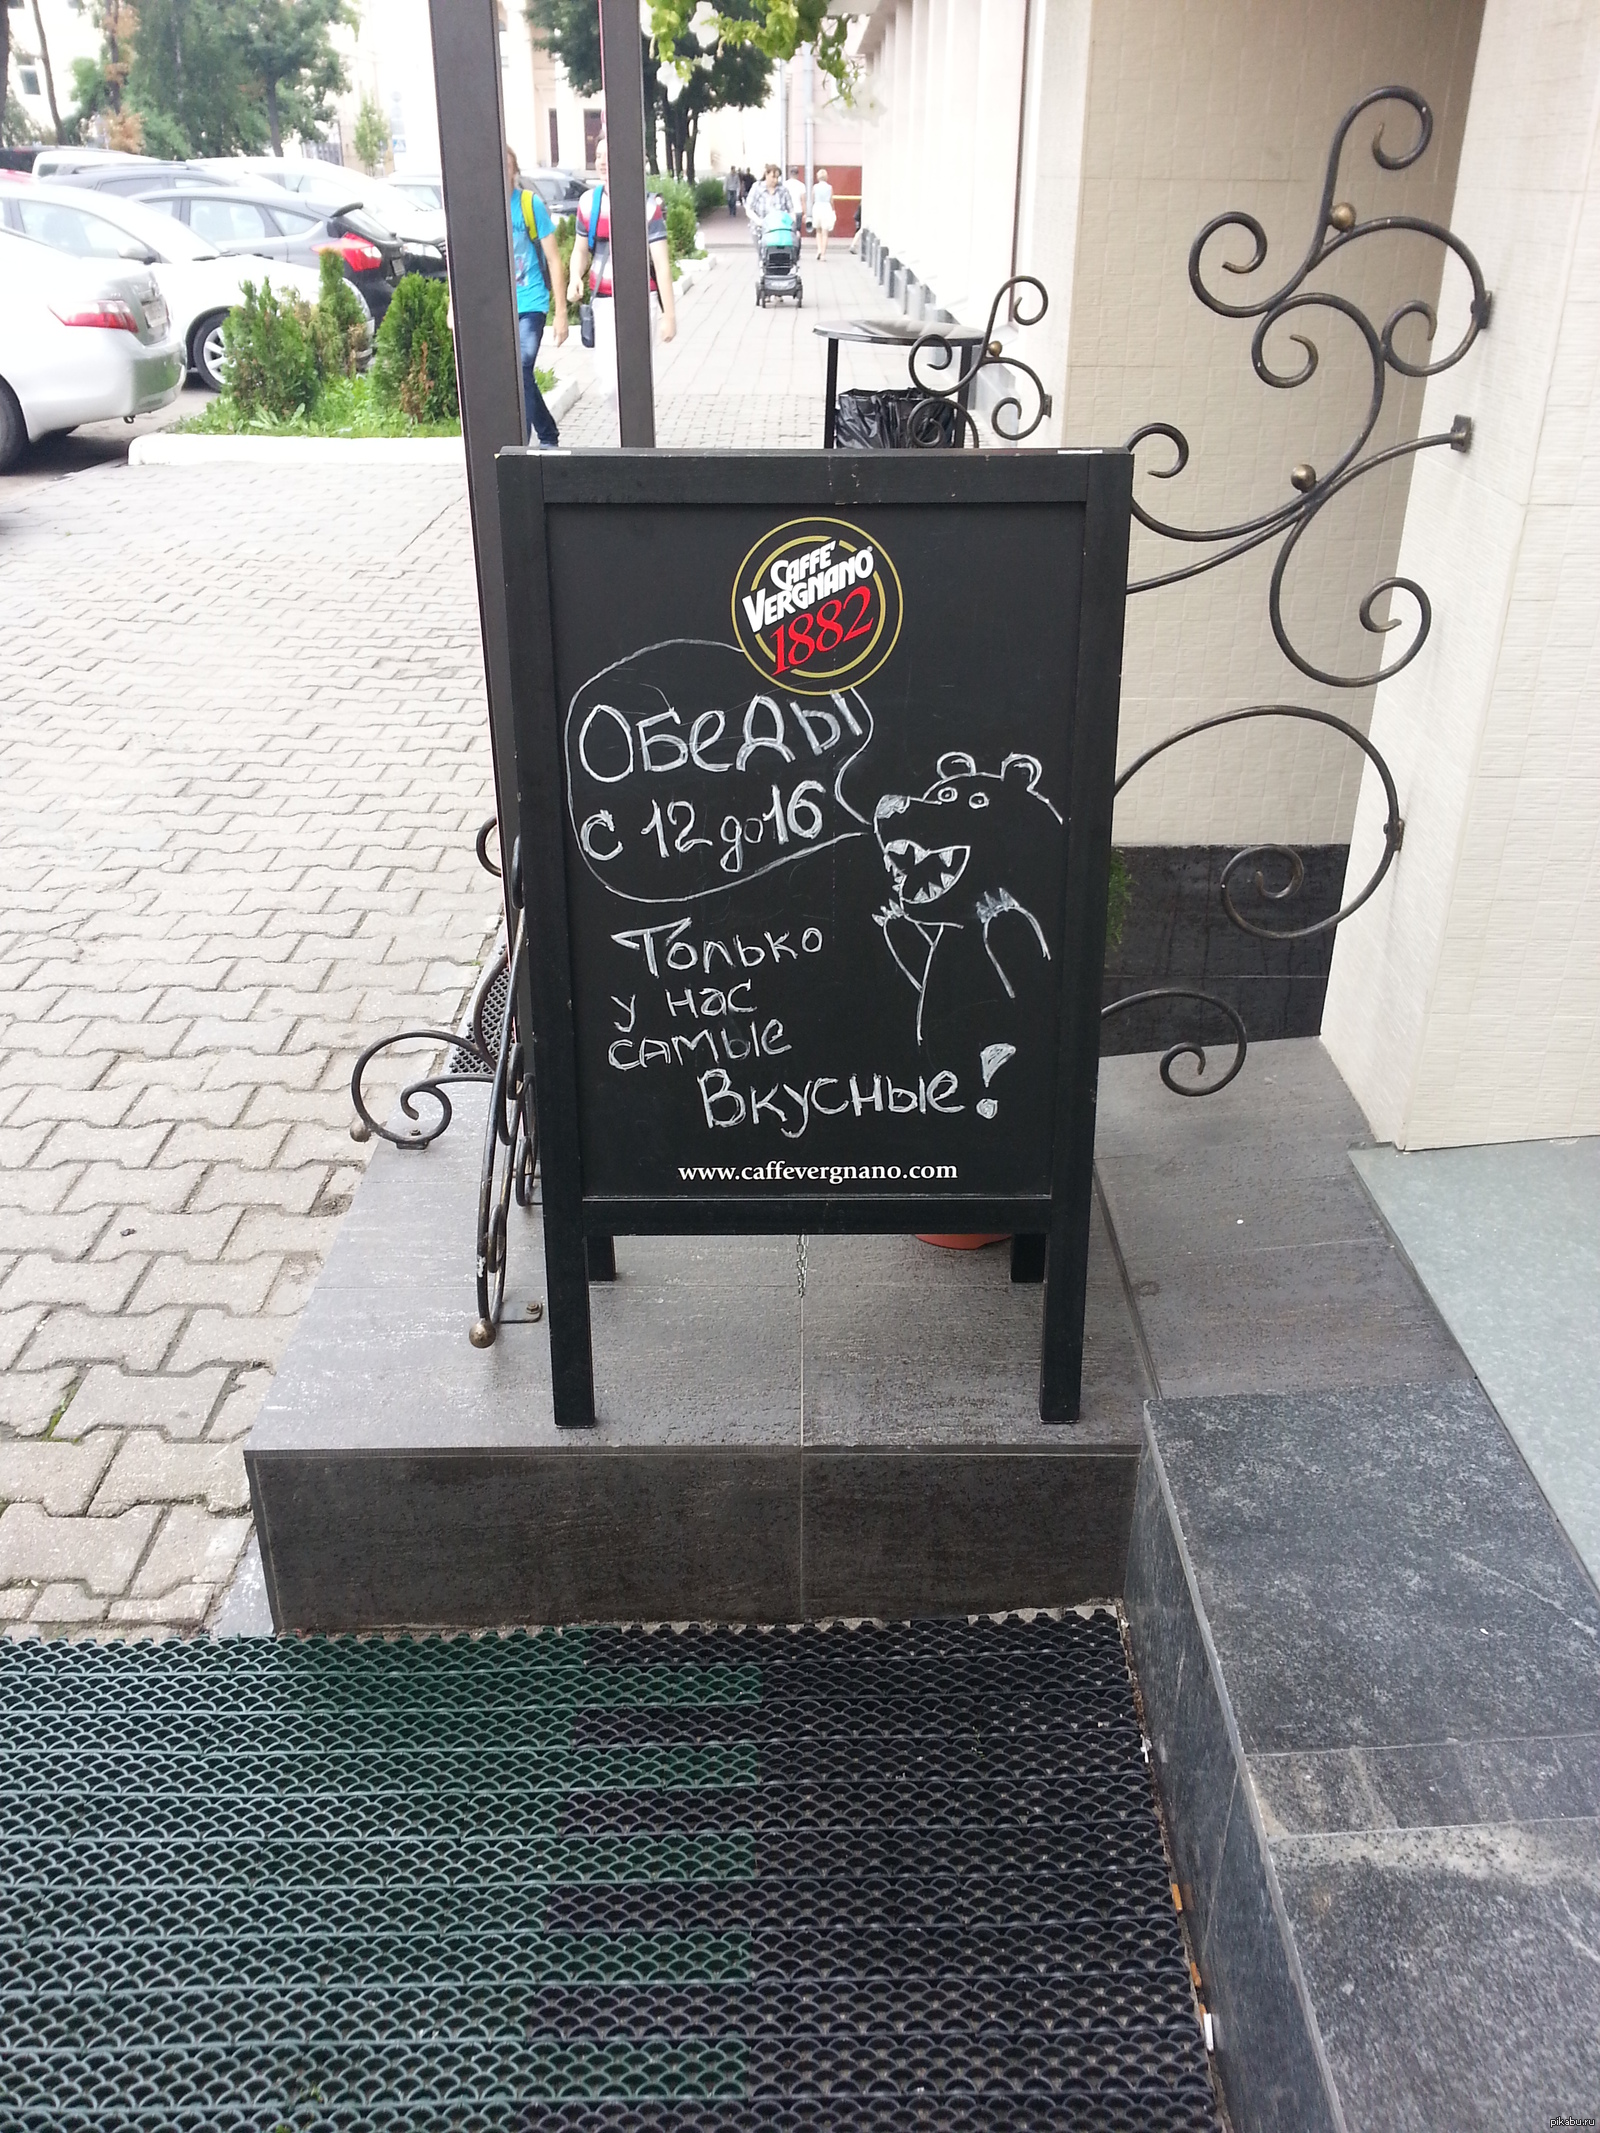 CAFFÈ
VERGNANO
1882
Обеды
с 12 до 16
Только
у нас
самые
Вкусные!
www.caffevergnano.com
pikabu.ru